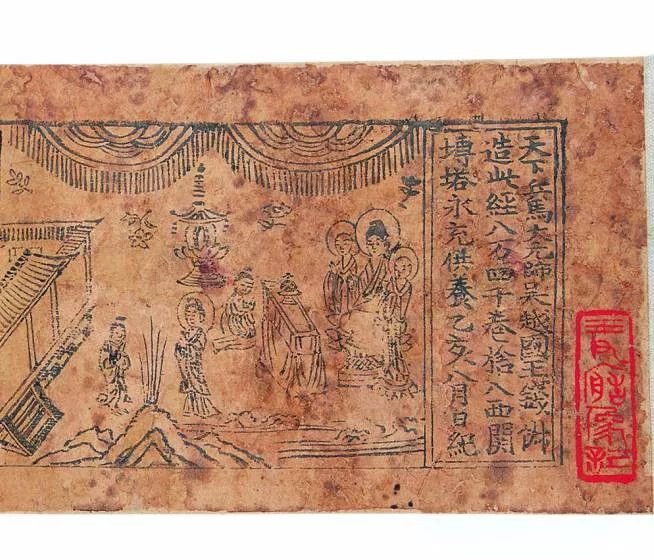 天下兵馬大元帥吳越國王錢俶
造此經八万四千卷捨入西關
塼塔永充供養乙亥八月日紀